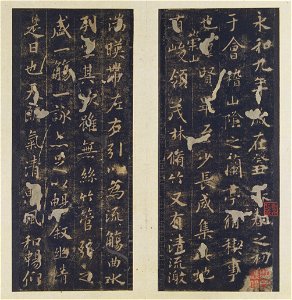 永和九年在癸丑之初
于會稽山陰之蘭亭脩稧事
也賢畢至少長咸集此地
有崇山峻領茂林脩竹又有清流激
湍暎帶左右引以為流觴曲水
列其次雖無絲竹管弦之
盛一觴一詠亦足以暢敘幽情
是日也天朗氣清風和暢仰